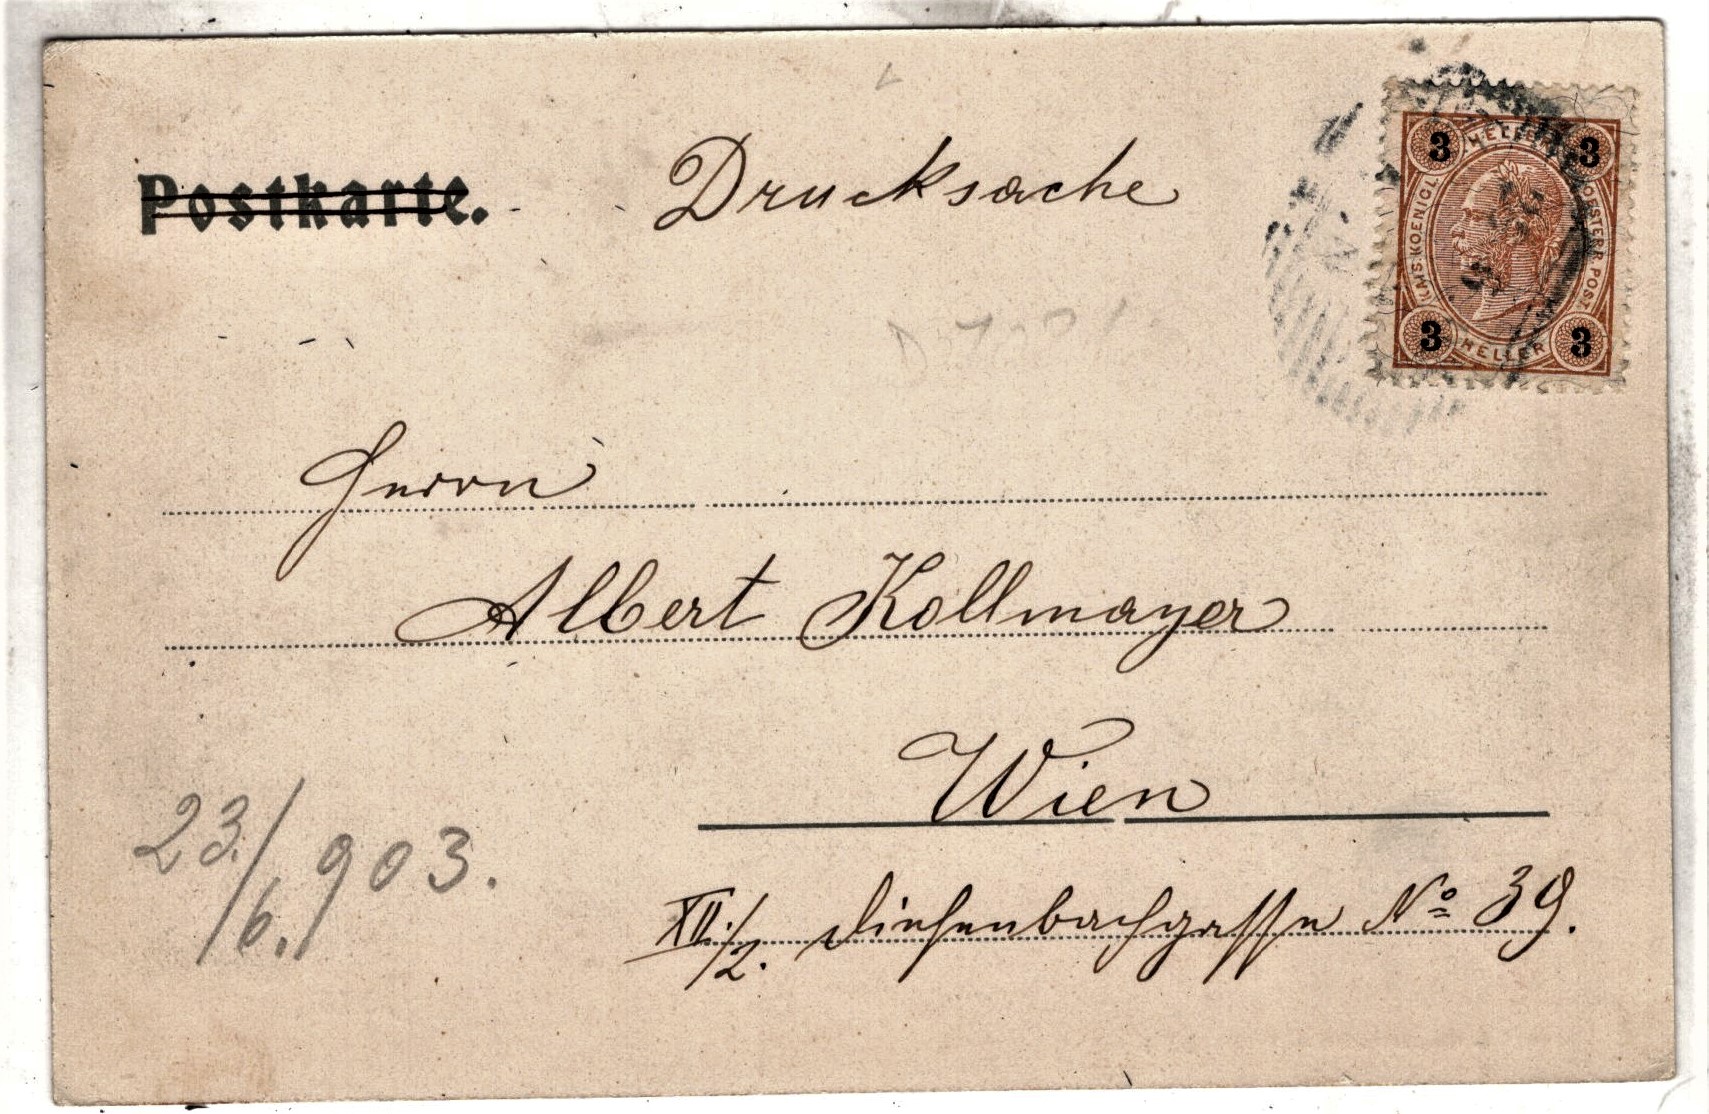 Postkarte.
Drucksache
3 HELLER 3
KAIS. KOENIGL. OESTERR. POST
3 HELLER 3
Herrn
Albert Kollmayer
Wien
23./6. 903.
XII./2. Diefenbachgasse No 39.